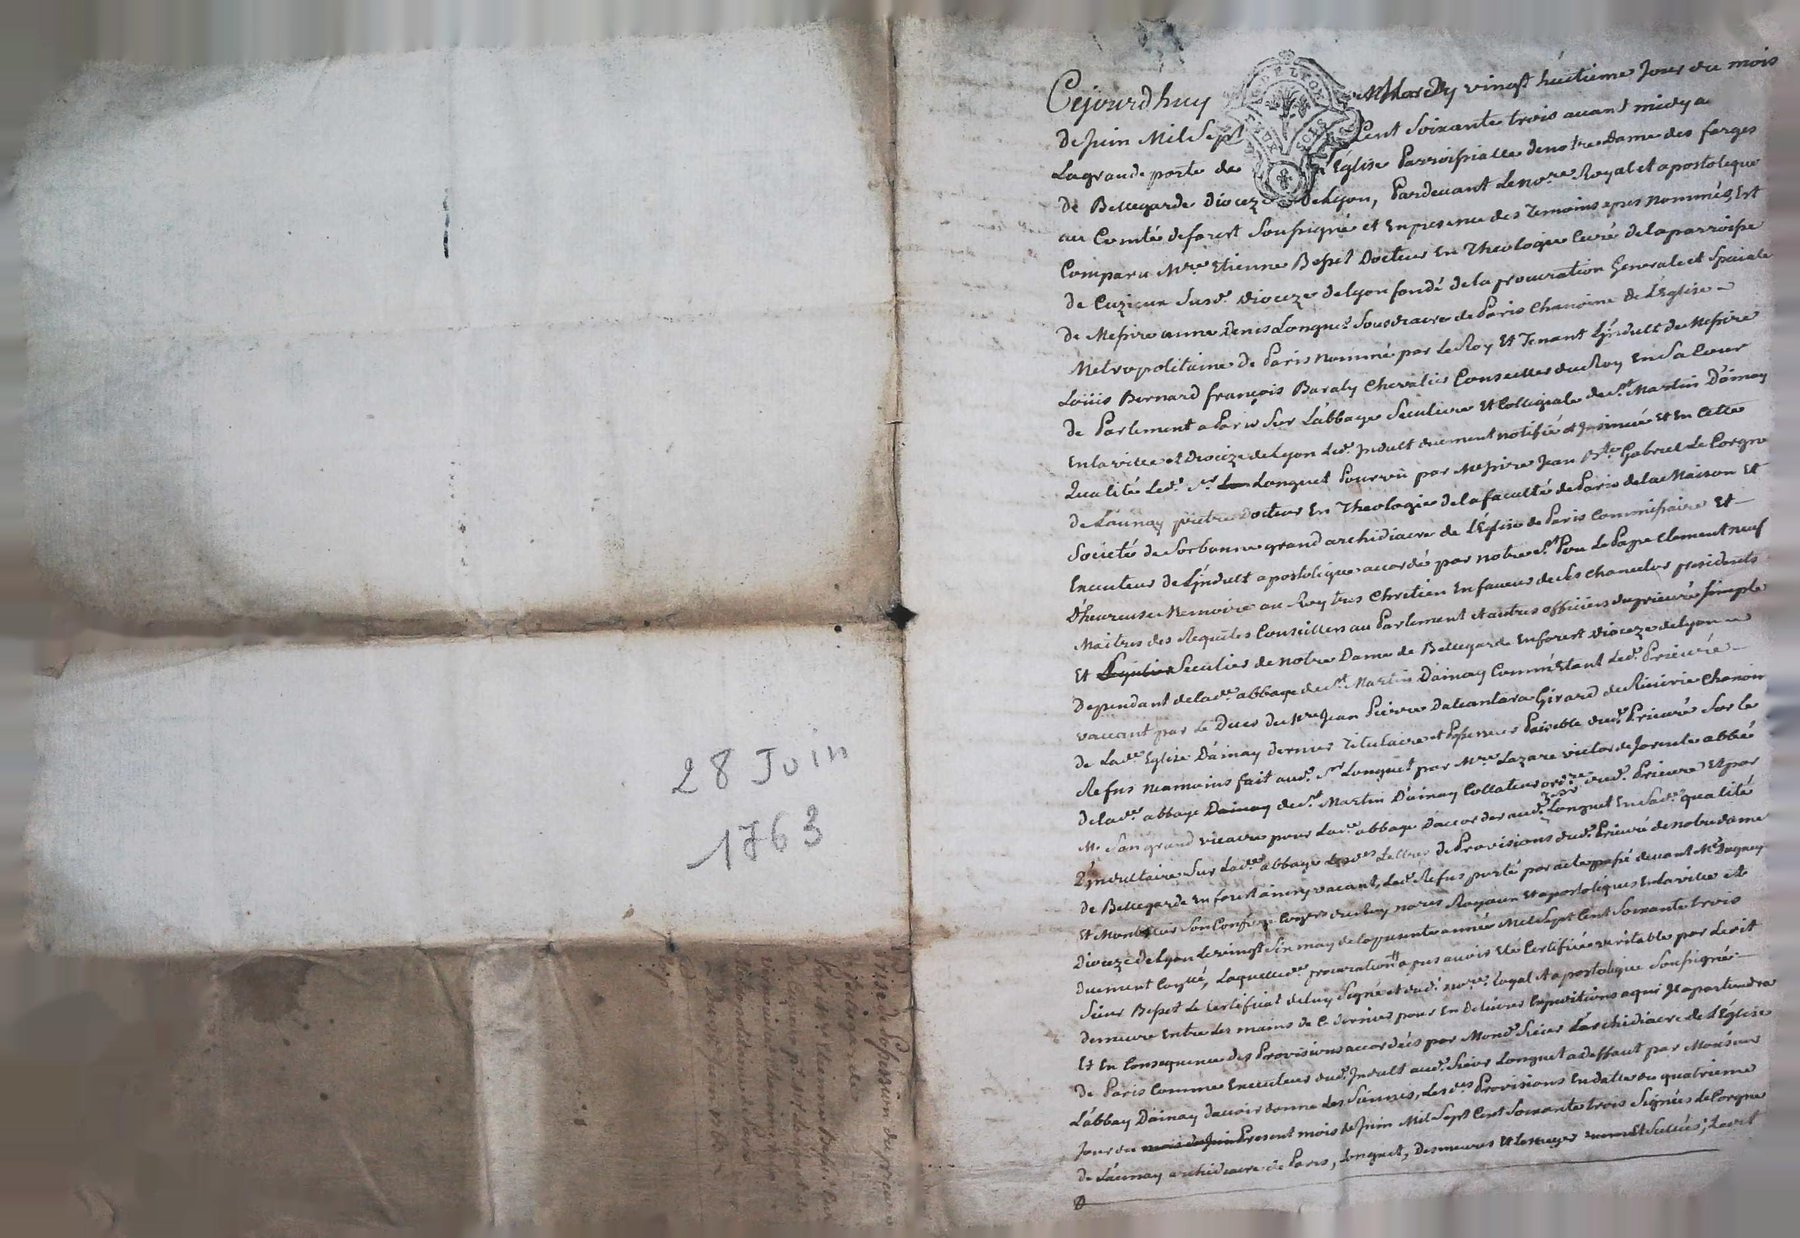 28 Juin
1763
Prise de possession du prieuré
de Bellegarde
par Mre Etienne Besset curé
de Cuzieu
chanoine de Paris
Du 28 Juin 1763
Cejourdhuy Mardy vingt huitieme Jour du mois
de Juin Mil Sept Cent Soixante trois avant midy a
La grande porte de L'Eglise Parroissialle de notre Dame des forges
de Bellegarde Dioceze de Lyon, Pardevant Le nore. Royal et apostolique
au Comté de forest Soussigné et En presence des Temoins apres nommés, Est
Comparu Mre. Etienne Besset Docteur En Theologie Curé de la parroisse
de Cuzieux Susd. Dioceze de Lyon fondé de la procuration Generale et Speciale
de Messire anne Denis Longuet Sousdiacre de Paris Chanoine de L'Eglise
Metropolitaine de Paris nommé par Le Roy Et Tenant L'Indult de Messire
Loüis Bernard françois Baraly Chevalier Conseiller du Roy En Sa Cour
de Parlement a Paris Sur L'abbaye Seculiere Et Collegiale de St. Martin D'ainay
En la ville et Dioceze de Lyon Led. Indult duement notifié et Insinué Et En Cette
Qualité Led. Sr. Longuet Pourvû par Messire Jean Bte. Gabriel Le Corgne
de Launay prêtre Docteur En Theologie de la faculté de Paris de la Maison Et
Société de Sorbonne grand archidiacre de L'Eglise de Paris Commissaire Et
Executeur de L'Indult apostolique accordé par notre St. Pere Le Pape Clement neuf
D'heureuse Memoire au Roy tres Chretien En faveur de Ses Chancelier presidents
Maitres des Requetes Conseillers au Parlement et autres officiers du prieuré Simple
Et Regulier Seculier de notre Dame de Bellegarde En forest Dioceze de Lyon
Dependant de lade. abbaye de St. Martin D'ainay Comme Etant Led. Prieuré
vaccant par Le Deces de Mre Jean Pierre Dalcantara Girard de Chanoin
de Lade. Eglise D'ainay dernier Titulaire et Possesseur Paisible dud. Prieuré Sur Le
Refus neamoins fait aud. Sr. Longuet par Mre. Lazare victor de Jarente abbé
de lade. abbaye Dainay de St. Martin D'ainay Collateur ordre. dud. Prieuré Et par
Mr. Son grand vicaire pour Lade. abbaye D'accorder aud. Sr. Longuet En Sade. qualité
D'Indultaire Sur Lade. abbaye Lesdes Lettres de Provisions dud. Prieuré de notre dame
de Bellegarde En forest ainsy vacant, Led. Refus porté par acte passé devant Me
Et Son Confrere Coners du Roy nores Royaux Et apostoliques En la ville et
Dioceze de Lyon Le vingt Six may de la presente année Mil Sept Cent Soixante trois
Duement Controllé, Laquelle de. procuration apres avoir Eté Certifiée veritable par Ledit
Sieur Besset Le Certificat de luy Signé et dud. nore. royal Et apostolique Soussigné
demeure Entre Les mains de Ce dernier pour En Delivrer Expeditions a qui Il apartiendra
Et En Consequence des Provisions accordées par Mond. Sieur L'archidiacre de L'Eglise
de Paris Comme Executeur dud. Indult aud. Sieur Longuet a deffaut par Monsieur
L'abbay D'ainay d'avoir donné les Siennes, Lesdes. Provisions En datte du quatrieme
Jour du mois de Juin Present mois de Juin Mil Sept Cent Soixante trois Signées Le Corgne
de Launay archidiacre de Paris, Longuet, Desmeures Et Et Scellées, Ledit